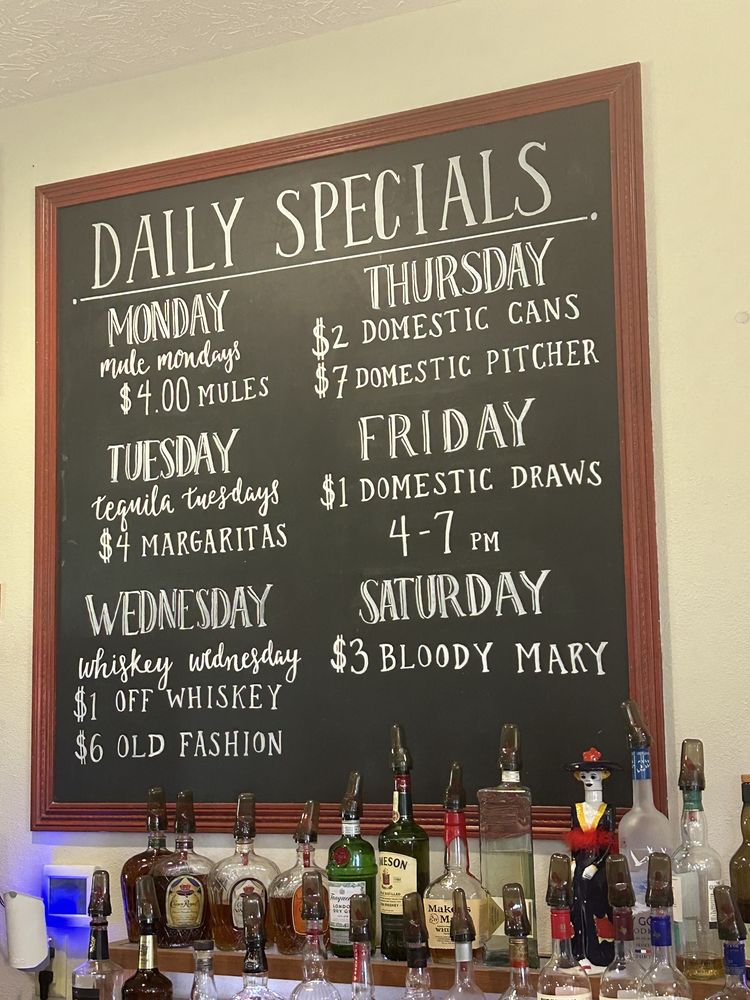 DAILY SPECIALS
MONDAY
mule mondays
$4.00 MULES
TUESDAY
tequila tuesdays
$4 MARGARITAS
WEDNESDAY
whiskey wednesday
$1 OFF WHISKEY
$6 OLD FASHION
THURSDAY
$2 DOMESTIC CANS
$7 DOMESTIC PITCHER
FRIDAY
$1 DOMESTIC DRAWS
4-7 PM
SATURDAY
$3 BLOODY MARY
Crown Royal
Tanqueray
LONDON
DRY GIN
Maker's
WHISKY